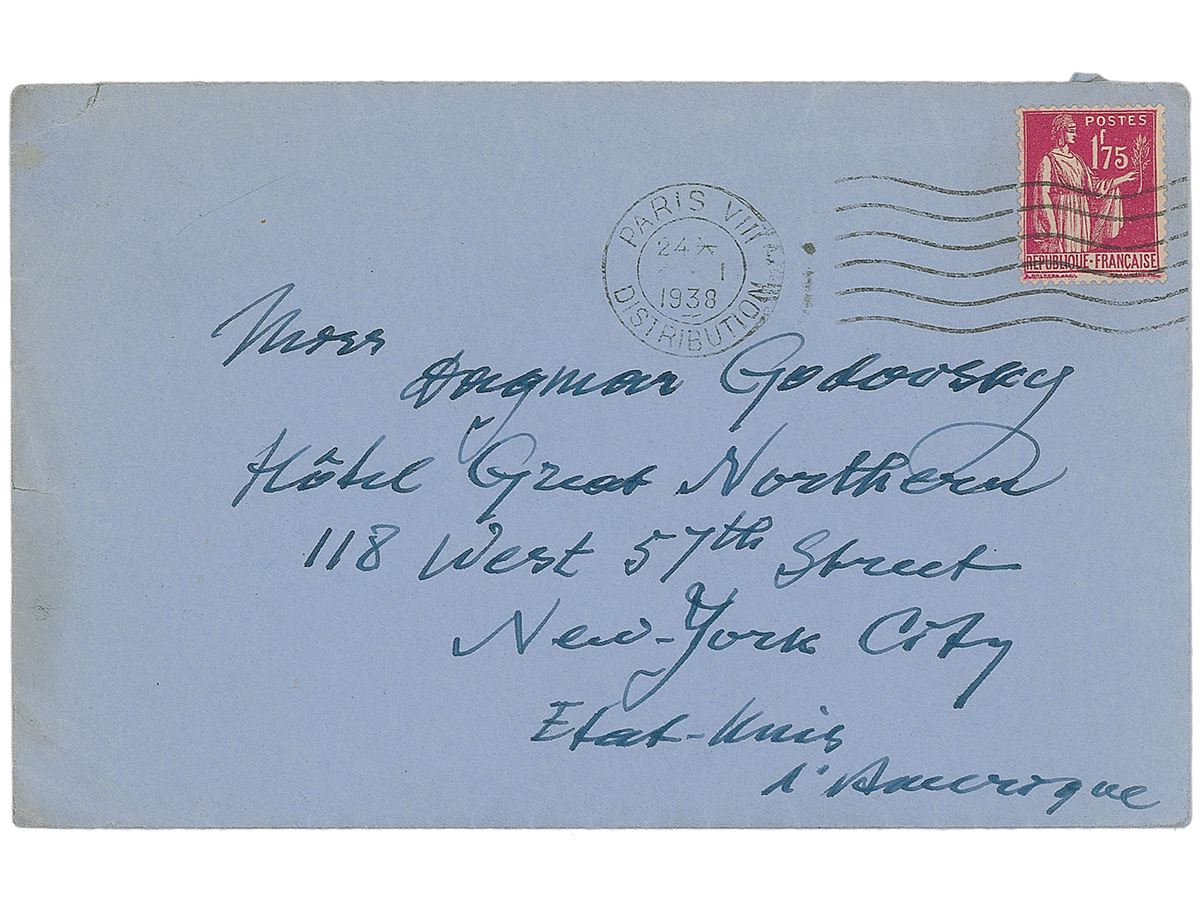 POSTES
1f75
RÉPUBLIQUE-FRANÇAISE
PARIS VIII
24
1
1938
DISTRIBUTION
Miss
Dagmar Godovsky
Hôtel Great Northern
118 West 57th Street
New-York City
Etat-Unis
d'Amerique